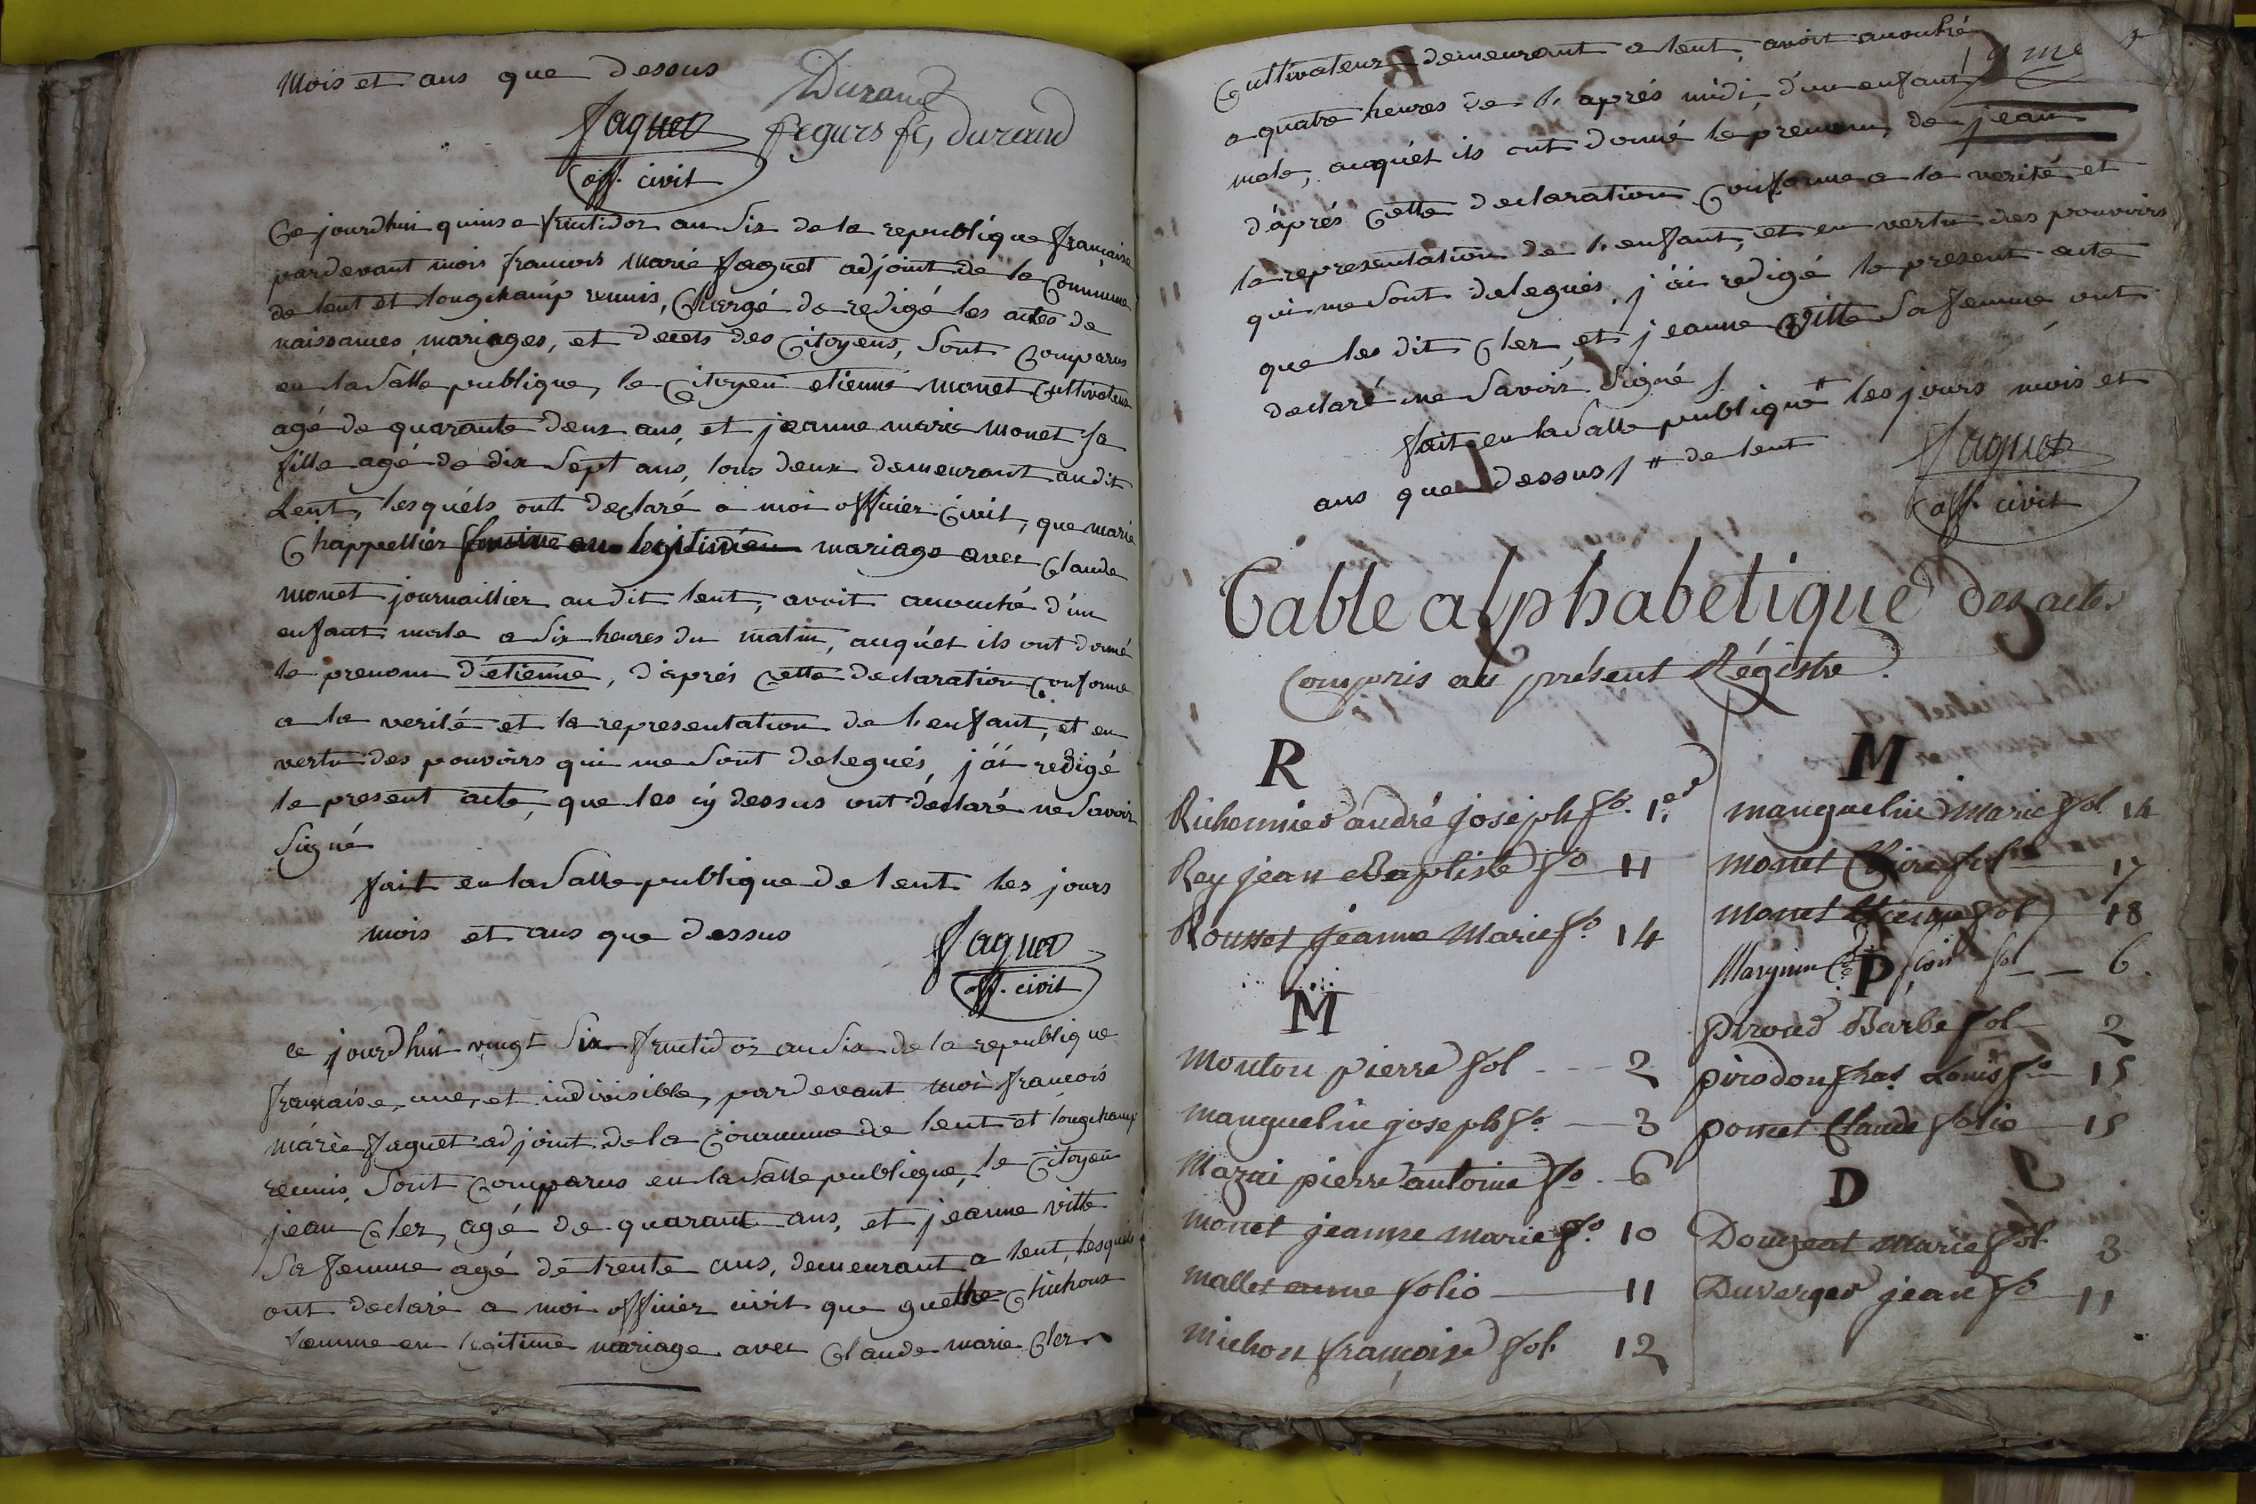 Mois et ans que dessus
Durand
Jaquet segurs fe, durand
off. civil
Ce jourdhui quinse fructidor an Six de la republique française
pardevant mois francois Marie Jaquet adjoint de la Commune
de lent et longchamp reunis, Chargé de redigé les actes de
naissances, mariages, et decets des Citoyens, Sont Comparus
en la Salle publique, le Citoyen etienne Monet Cultivateur
agé de quarante deux ans, et jeanne marie Monet Sa
fille agé de dix Sept ans, tous deux demeurant audit
Lent, lesquéls ont declaré a moi officier Civil, que marie
Chappellier femme en legitime mariage avec Claude
Monet journaillier audit lent, avoit acouché d'un
enfant male a Six heures du matin, auquét ils ont donné
le prenom d'etienne, d'aprés Cette declaration Conforme
a la verité et la representation de l'enfant, et en
vertu des pouvoirs qui me Sont delegués, j'ai redigé
le present acte, que les cy dessus ont declaré ne Savoir
Signé
fait en la Salle publique de lent les jours
mois et ans que dessus
Jaquet
off. civil
ce jourdhui vingt Six fructidor an Six de la republique
française, une, et indivisible, pardevant moi francois
marie Jaquet adjoint de la Commune de lent et longchamp
reunis, Sont Comparus en la Salle publique, le Citoyen
jean Cler, agé de quarant ans, et jeanne vitte
Sa femme agé de trente ans, demeurant a lent, lesquéls
ont declaré a moi officier civil que
femme en legitime mariage avec Claude marie Cler
Cultivateur demeurant a lent, avoit acouché
a quatre heures de l'aprés midi, d'un enfant
male, auquét ils ont donné le prenom de jean
d'aprés Cette declaration Conforme a la verité et
la representation de l'enfant, et en vertu des pouvoirs
qui me Sont delegués, j'ai redigé le present acte
que les dit Cler, et jeanne vitte Sa femme, ont
declaré ne Savoir Signé /.
fait en la Salle publique # les jours mois et
ans que dessus / # de lent
Jaquet
off. civil
Table alphabetique des actes
Compris au présent Régistre.
R
Richonnier andré joseph fo. 1er
Rey jean Baptiste fo 11
Rousset jeanne Marie fo. 14
M
Mouton pierre fol --- 2
Manguelin joseph fo. — 3
Mazui pierre antoine fo. - 6
Monet jeanne marie fo. 10
Mallet anne folio — 11
Michon françoise fol. 12
M
Manguelin Marie fol 14
Monet Claire fol 17
Monet Etienne fol 18
Marguin fol — 6.
P
Piroud Barbe fol 2
pirodon fras. Louis fo 15
poncet Claude folio 15
D
Douzeat Marie fol. 3
Duverger jean fo 11